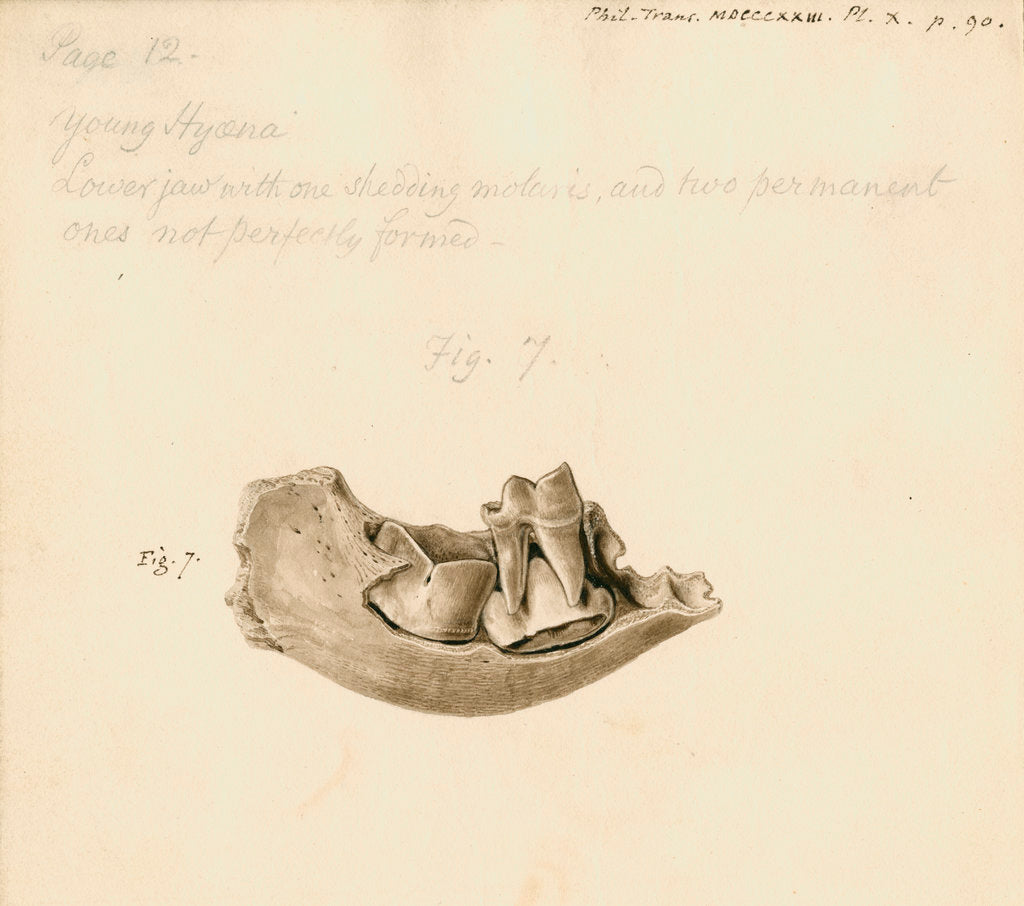 Phil. Trans. MDCCCXXIII. Pl. X. p. 90.
Page 12.
Young Hyæna
Lower jaw with one shedding molaris, and two permanent
ones not perfectly formed -
Fig. 7.
Fig. 7.